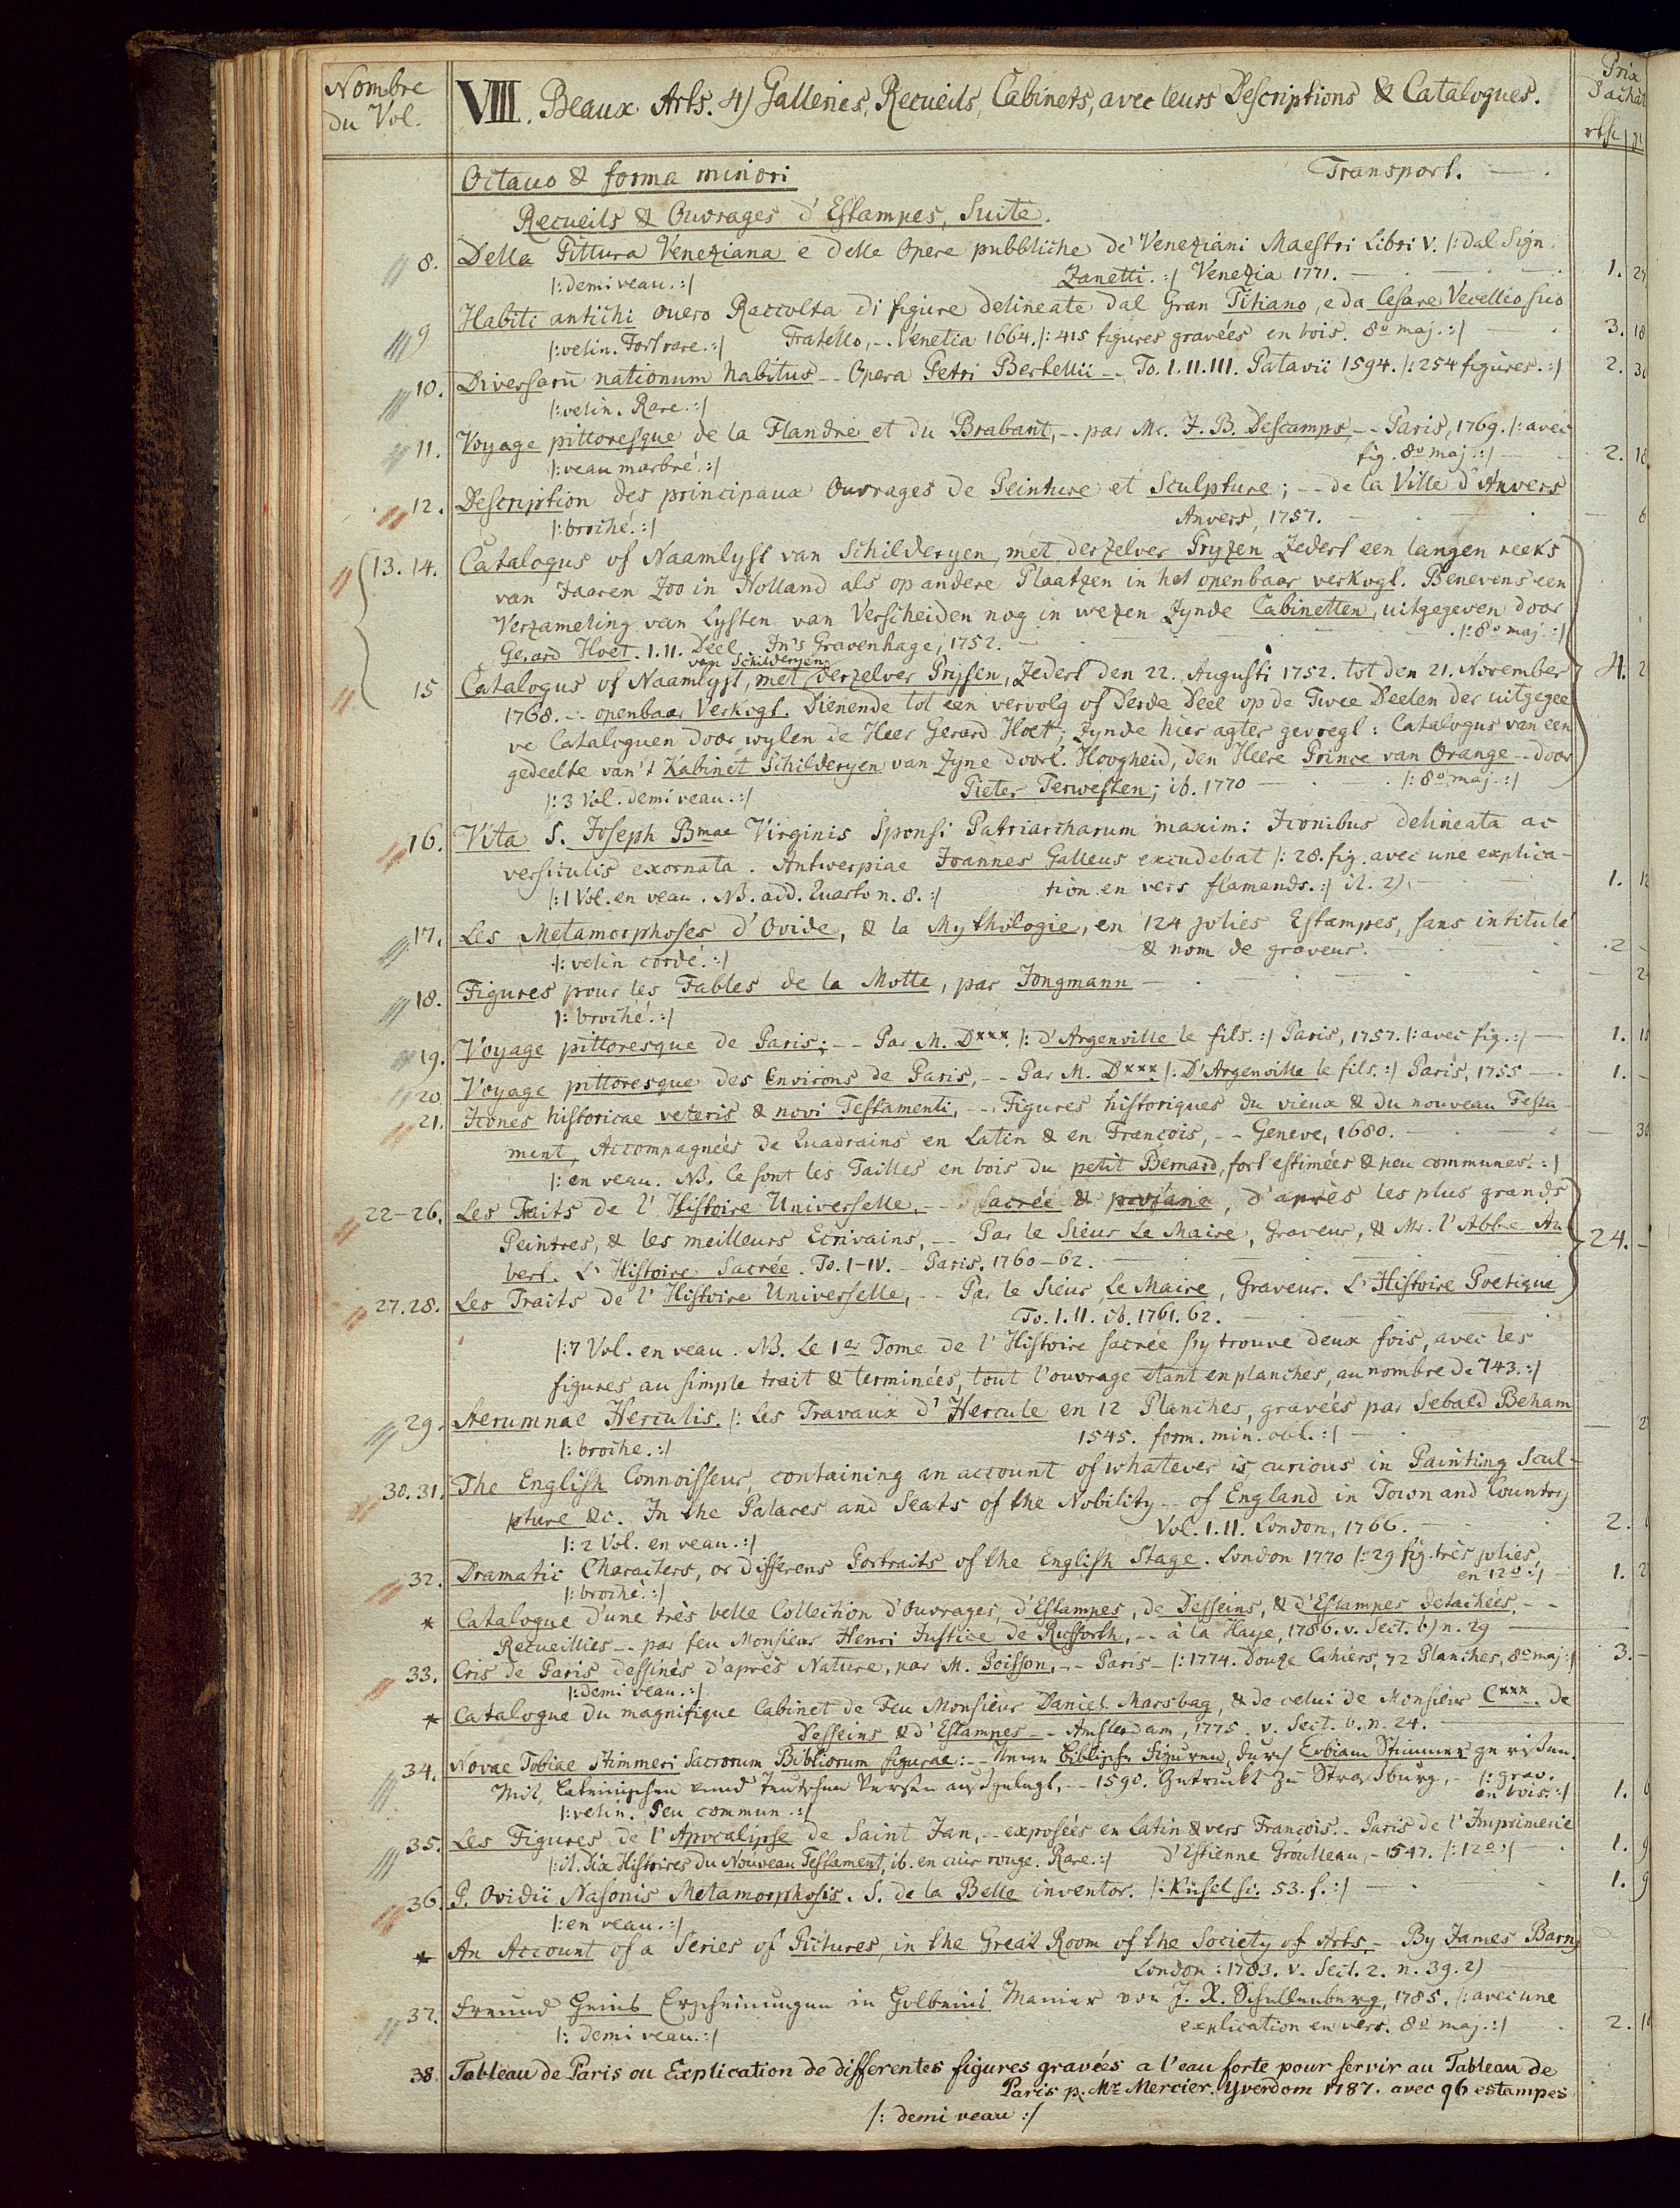 Nombre
du Vol.
VIII. Beaux Arts. 4) Galleries, Recueils, Cabinets, avec leurs Descriptions & Catalogues.
Prix
d'achat
Octavo & forma minori Transport.
Recueils & Ouvrages d'Estampes, Suite.
8. Della Pittura Veneziana e delle Opere pubbliche de' Veneziani Maestri Libri V. |: dal Sign.
|: demi veau. :| Zanetti. :| Venezia 1771. 1.
9 Habiti antichi ouero Raccolta di figure delineate dal Gran Titiano, e da Cesare Vecellio suo
|: velin. Fort rare. :| Fratello, -. Venetia 1664. |: 415 figures gravées en bois. 8o maj. :| 3. 18
10. Diversarū nationum habitus -- Opera Petri Bertellii -- To. I. II. III. Patavii 1594. |: 254 figures. :| 2.
|: velin. Rare. :|
11. Voyage pittoresque de la Flandre et du Brabant, -- par Mr. J. B. Descamps, -- Paris, 1769. |: avec
|: veau marbré. :| fig. 8o maj. :| 2.
12. Description des principaux Ouvrages de Peinture et Sculpture; -- de la Ville d'Anvers
|: broché. :| Anvers, 1757.
13. 14. Catalogus of Naamlyst van Schilderyen, met derzelver Pryzen Zedert een langen reeks
van Jaaren Zoo in Holland als op andere Plaatzen in het openbaar verkogt. Benevens een
Verzameling van Lysten van Verscheiden nog in wezen Zynde Cabinetten, uitgegeven door
Gerard Hoet. I. II. Deel. In's Gravenhage, 1752. |: 8o maj. :|
van Schilderyen
15 Catalogus of Naamlyst, met derzelver Prysen, Zedert den 22. Augusti 1752. tot den 21. November 4.
1768. -- openbaar Verkogt. Dienende tot een vervolg of Derde Deel op de Twee Deelen der uitgegee
ve Cataloguen door wylen de Heer Gerard Hoet; Zynde hier agter gevoegt: Catalogus van een
gedeelte van't Kabinet Schilderyen van Zyne Doorl. Hoogheid, den Heere Prince van Orange -- door
|: 3 Vol. demi veau. :| Pieter Terwesten; ib. 1770 |: 8o maj. :|
16. Vita S. Joseph Bmae Virginis Sponsi Patriarcharum maxim: Iconibus delineata ac
versiculis exornata. Antwerpiae Joannes Galleus excudebat |: 28. fig. avec une explica-
|: 1 Vol. en veau. NB. add. Quarto n. 8. :| tion en vers flamands. :| it. 2) 1. 12
17. Les Metamorphoses d'Ovide, & la Mythologie, en 124 jolies Estampes, sans intitulé
|: velin cordé. :| & nom de graveur. 2 -
18. Figures pour les Fables de la Motte, par Jongmann
|: broché. :|
19. Voyage pittoresque de Paris; -- Par M. Dxxx. |: d'Argenville le fils. :| Paris, 1757. |: avec fig. :| 1.
20. Voyage pittoresque des Environs de Paris, -- Par M. Dxxx |: D'Argenville le fils. :| Paris, 1755 1. -
21. Icones historicae veteris & novi Testamenti, -- Figures historiques du vieux & du nouveau Testa-
ment, Accompagnées de Quadrains en Latin & en François, -- Geneve, 1680.
|: en veau. NB. Ce sont les Tailles en bois du petit Bernard, fort estimées & peu communes. :|
22-26. Les Traits de l'Histoire Universelle, -- Sacrée & profane, d'après les plus grands
Peintres, & les meilleurs Ecrivains, -- Par le Sieur Le Maire, Graveur, & Mr. l'Abbe Au 24. -
bert. L'Histoire Sacrée. To. I-IV. - Paris. 1760-62.
27. 28. Les Traits de l'Histoire Universelle, -- Par le Sieur Le Maire, Graveur. L'Histoire Poetique
To. I. II. ib. 1761. 62.
|: 7 Vol. en veau. NB. Le 1er Tome de l'Histoire sacrée s'y trouve deux fois, avec les
figures au simple trait & terminées, tout l'ouvrage etant en planches, au nombre de 743. :|
29. Aerumnae Herculis. |: Les Travaux d'Hercule en 12 Planches, gravées par Sebald Beham
|: broche. :| 1545. form. min. obl. :|
30. 31. The English Connoisseur, containing an account of whatever is curious in Painting Scul-
pture &c. In the Palaces and Seats of the Nobility -- of England in Town and Country
|: 2 Vol. en veau. :| Vol. I. II. London, 1766. 2.
32. Dramatic Characters, or differens Portraits of the English Stage. London 1770 |: 29 fig. très jolies,
|: broché. :| en 12o :| 1.
* Catalogue d'une très belle Collection d'Ouvrages, d'Estampes, de Desseins, & d'Estampes detachées, --
Recueillies -- par feu Monsieur Henri Justice de Rufforth, -- à la Haye, 1786. v. Sect. 6) n. 29
33. Cris de Paris dessinés d'après Nature, par M. Poisson, -- Paris - |: 1774. Douze Cahiers, 72 Planches, 8o maj :| 3. -
|: demi veau. :|
* Catalogue du magnifique Cabinet de Feu Monsieur Daniel Marsbag, & de celui de Monsieur Cxxx. de
Desseins & d'Estampes -- Amsterdam, 1775. v. Sect. 6. n. 24.
34. Novae Tobiae Stimmeri Sacrorum Bibliorum figurae: -- Neue Biblische Figuren, durch Tobiam Stimmer gerissen.
Mit Lateinischen vnnd Teutschen Versen außgelegt, -- 1590. Getruckt zu Strasburg, - |: grav.
|: velin. Peu commun. :| en bois. :| 1.
35. Les Figures de l'Apocalipse de Saint Jan, -- exposées en Latin & vers François. -- Paris de l'Imprimerie
|: it. Dix Histoires du Nouveau Testament, ib. en cuir rouge. Rare. :| d'Estienne Groulleau, - 1547. |: 12o :| 1. 9
36. P. Ovidii Nasonis Metamorphosis. S. de la Belle inventor. |: Küsel sc. 53. f. :| 1. 9
|: en veau. :|
* An Account of a Series of Pictures, in the Great Room of the Society of Arts, - By James Barry
London: 1783. v. Sect. 2. n. 39. 2)
37. Freund Heins Erscheinungen in Holbeins Manier von J. R. Schellenberg, 1785. |: avec une
|: demi veau. :| explication en vers. 8o maj. :| 2.
38. Tableau de Paris ou Explication de differentes figures gravées a l'eau forte pour servir au Tableau de
Paris p. Mr. Mercier. Yverdom 1787. avec 96 estampes
|: demi veau :|